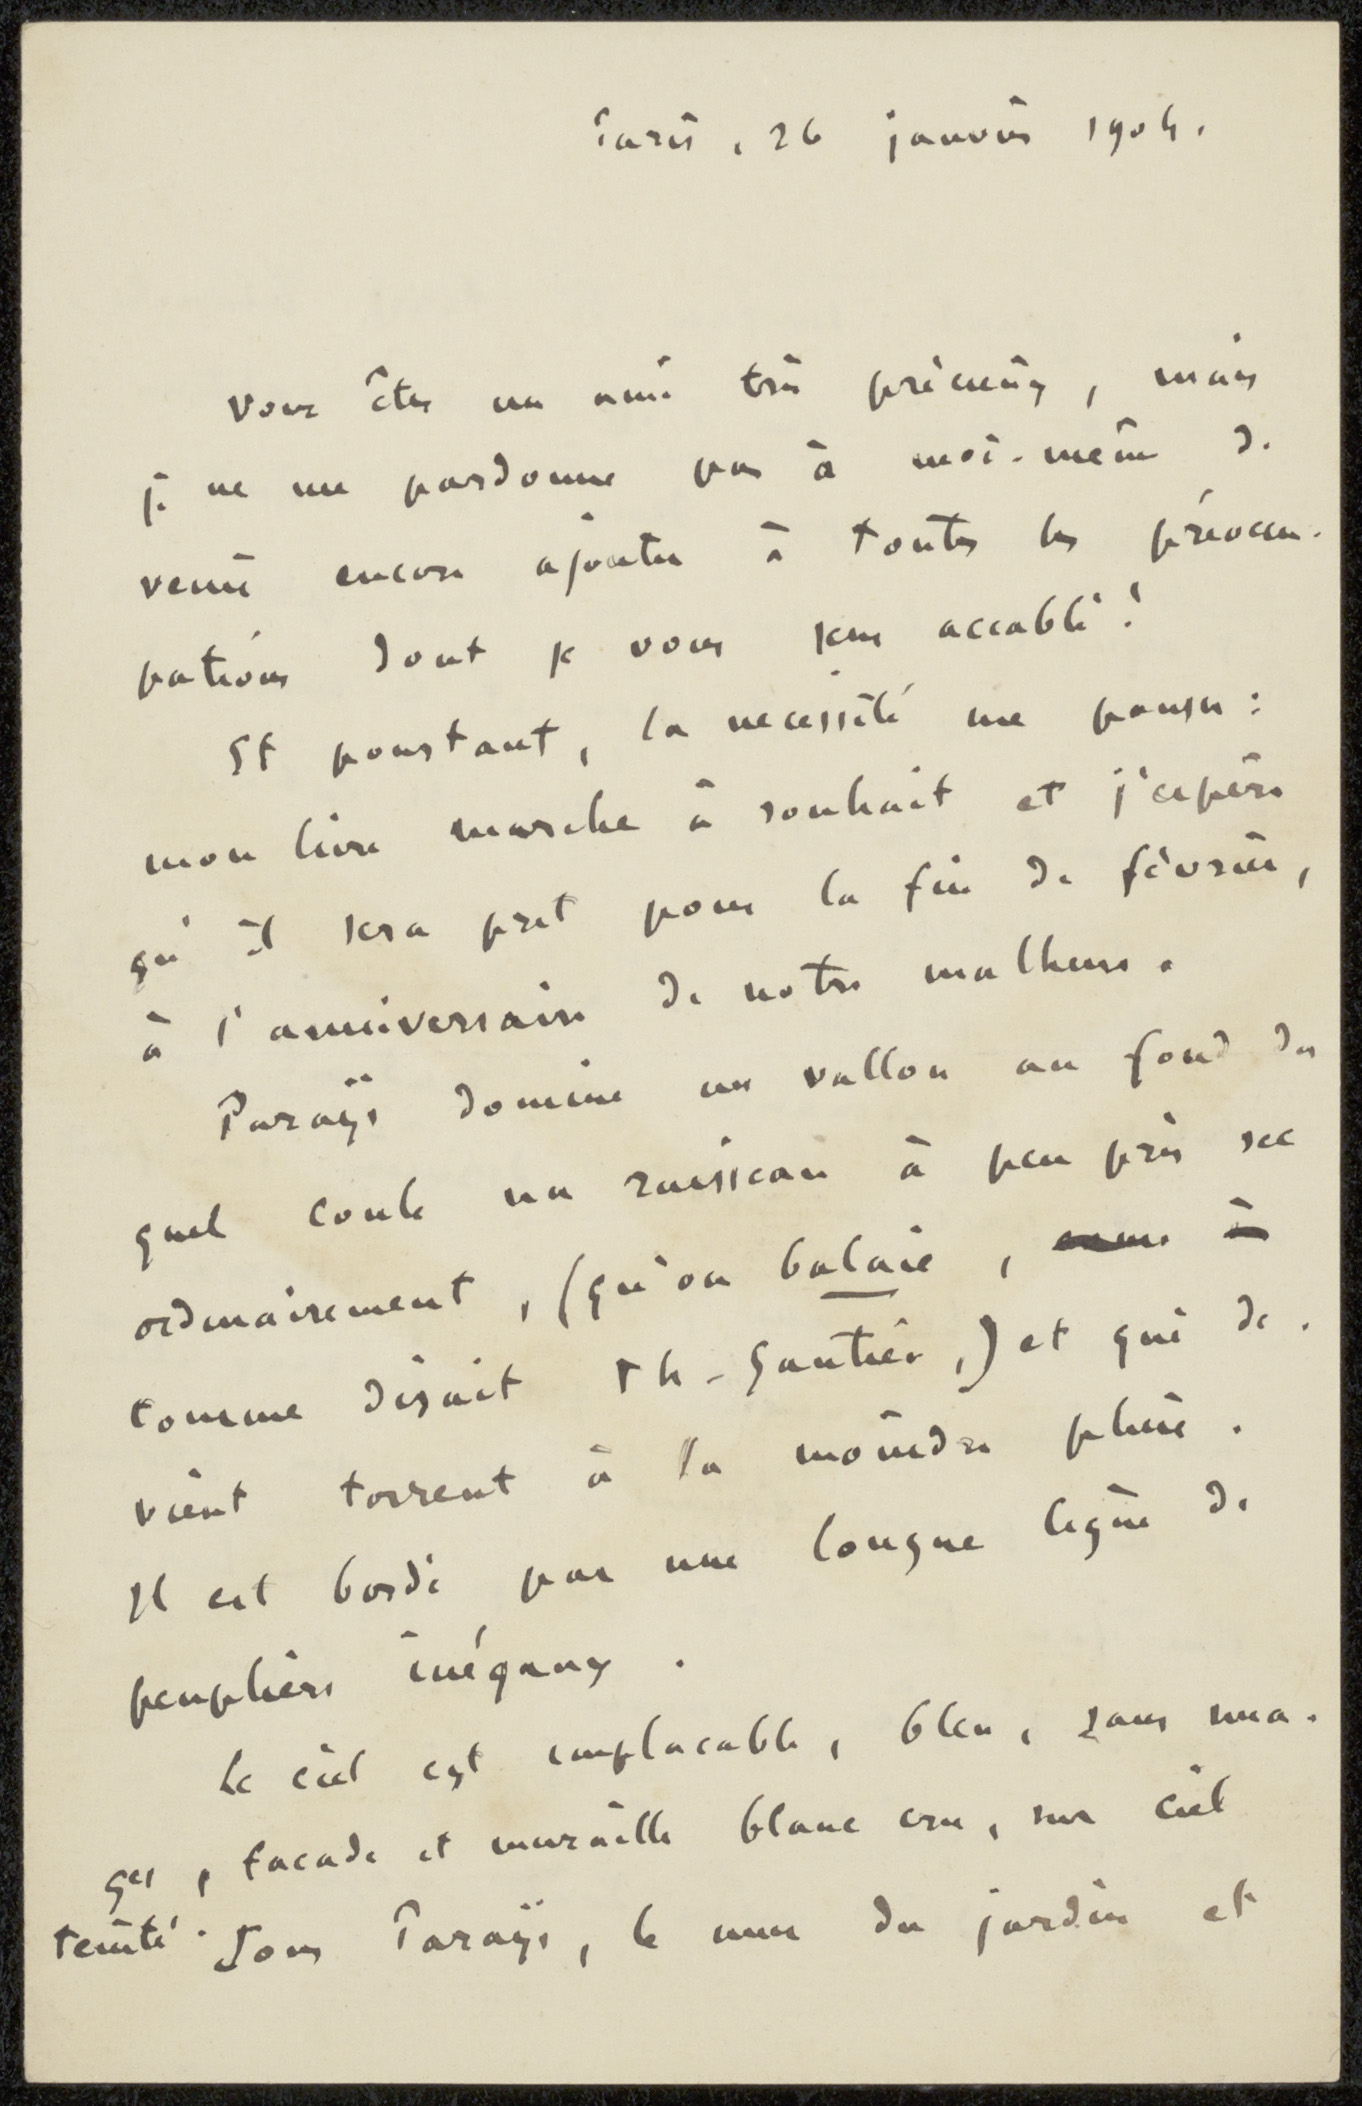 Paris, 26 janvier 1904.
Vous êtes un ami très précieux, mais
je ne me pardonne pas à moi-même de
venir encore ajouter à toutes les préoccu-
pations dont je vous sens accablé!
Et pourtant, la necessité me pousse:
mon livre marche à souhait et j'espère
qu'il sera pret pour la fin de février,
à l'anniversaire de notre malheur.
Parays domine un vallon au fond du
quel coule un ruisseau à peu près sec
ordinairement, (qu'on balaie,
comme disait Th-Gautier,) et qui de-
vient torrent à la moindre pluie.
Il est bordé par une longue ligne de
peupliers inégaux.
Le ciel est implacable, bleu, sans nua-
ges, facade et muraille blanc cru, sur ciel
teinté. Sous Parays, le mur du jardin et